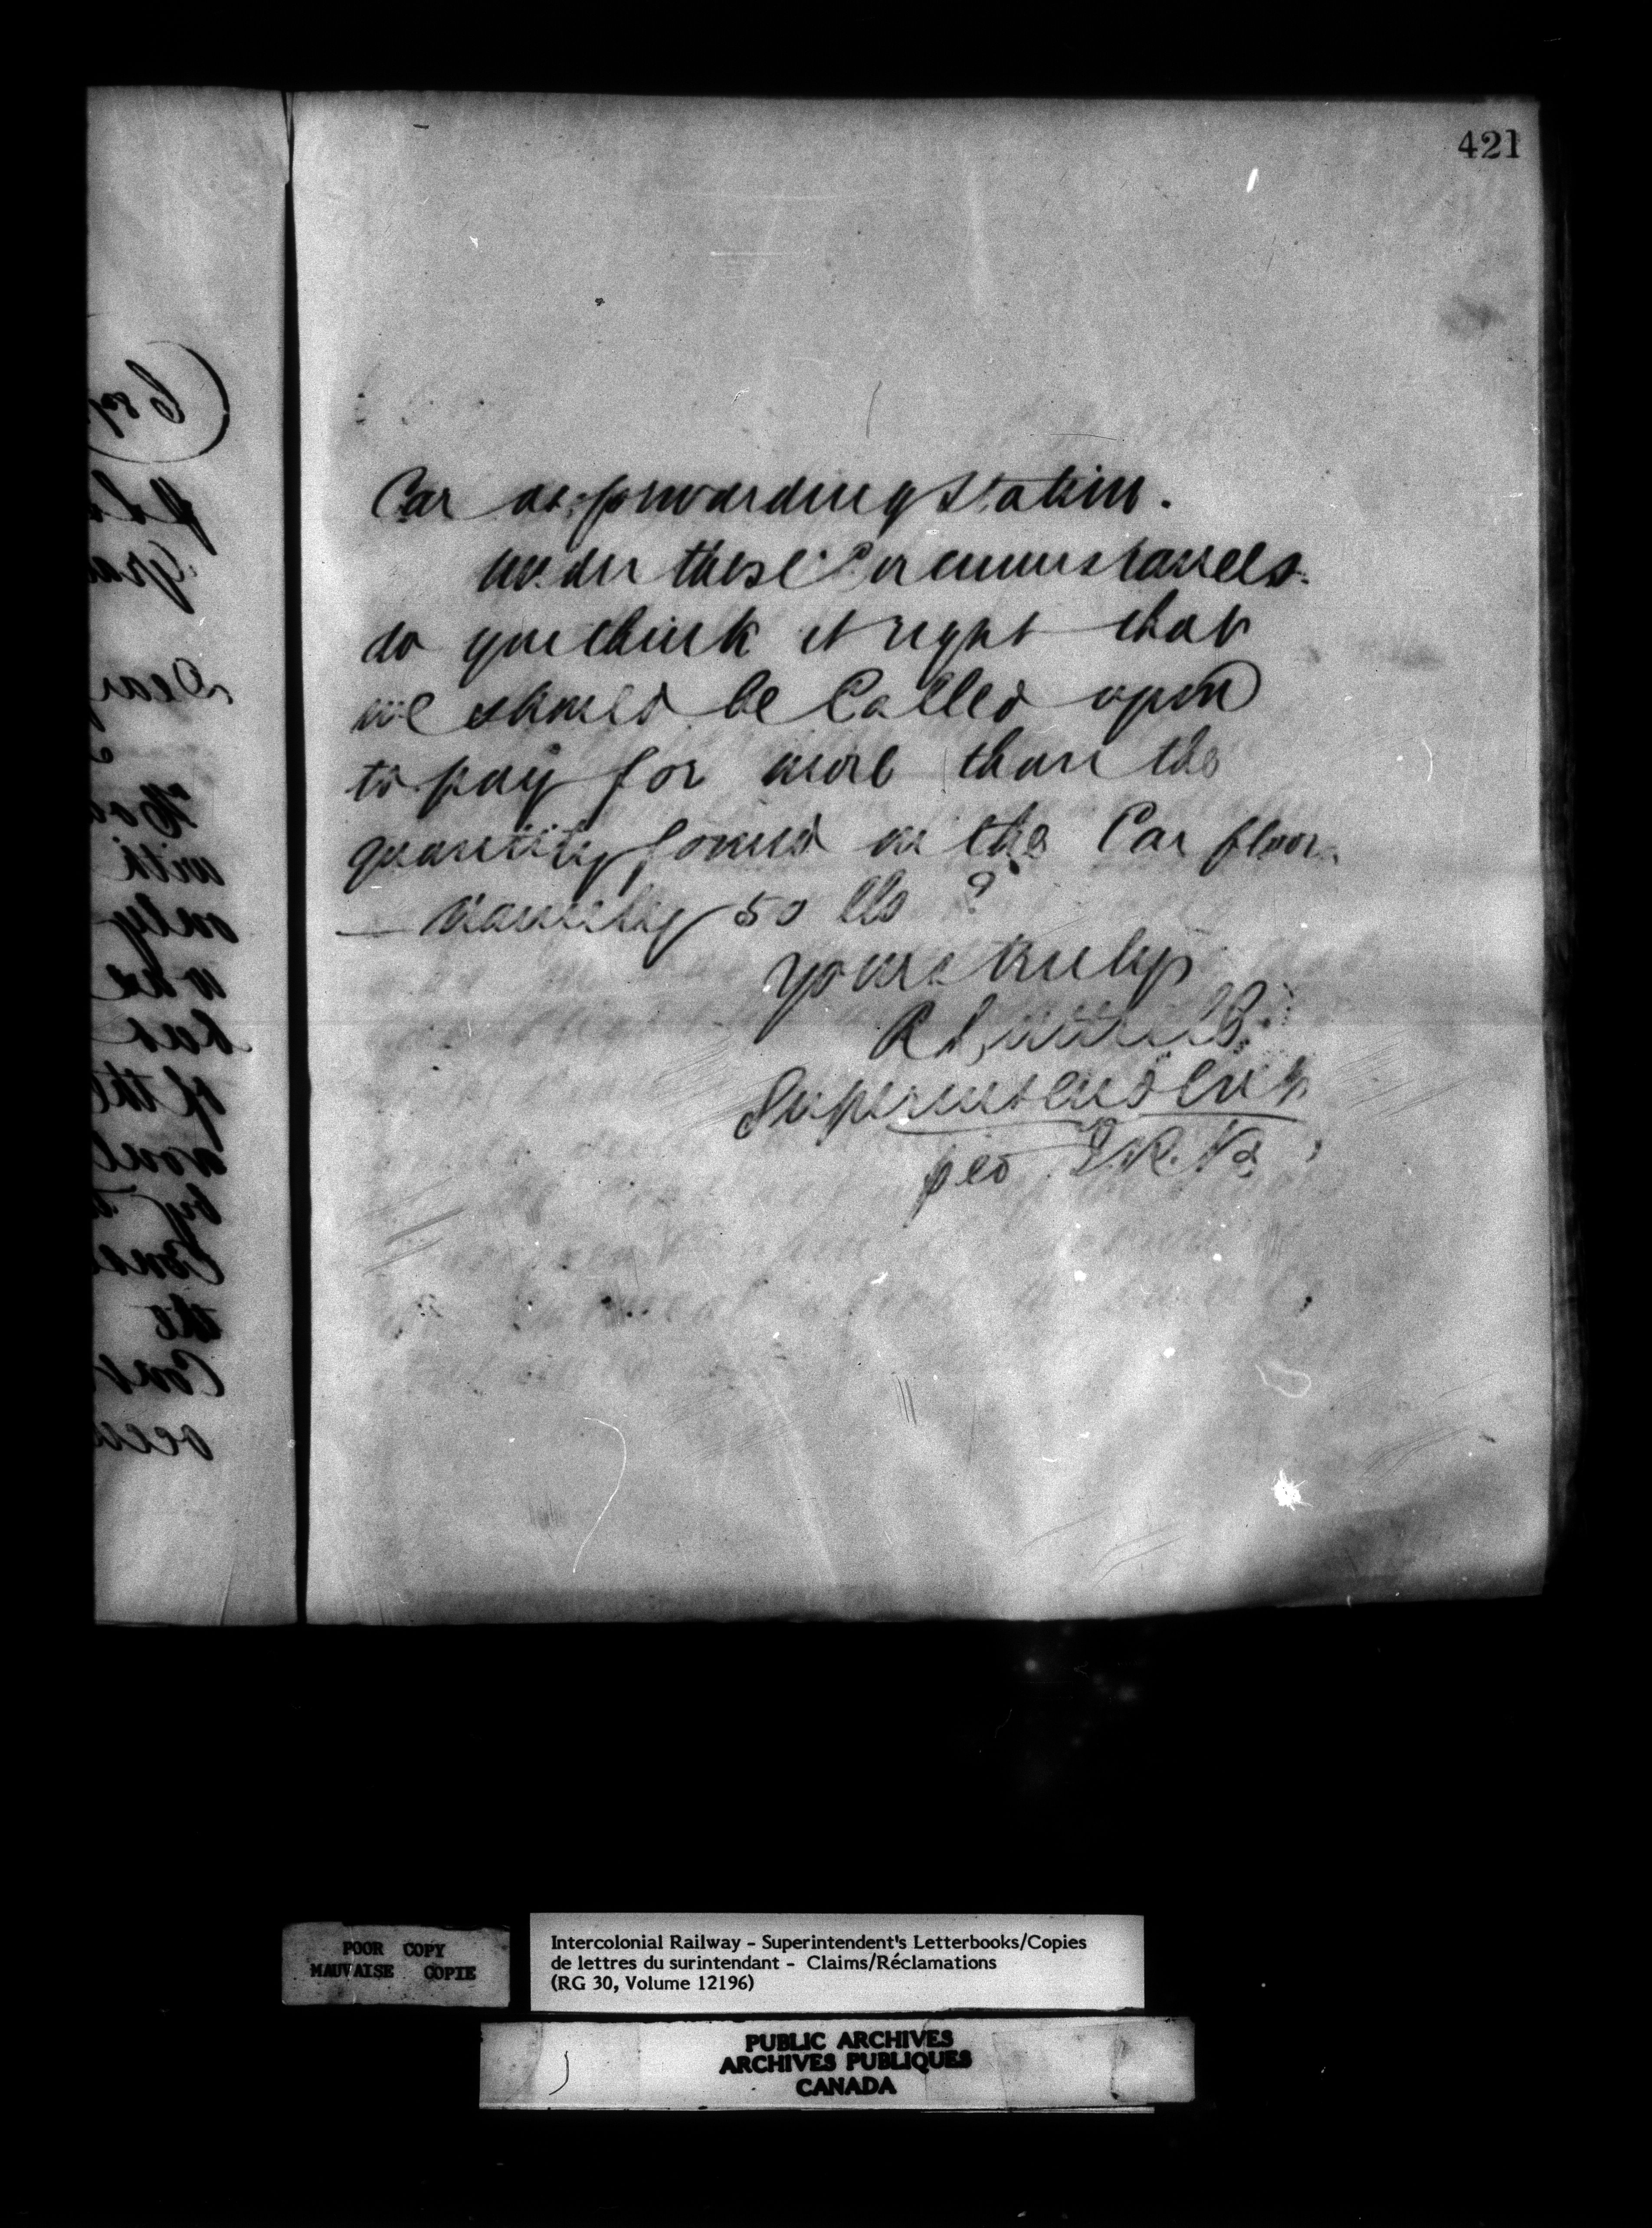 421
Car at forwarding station.
under these Circumstances
do you think it right that
we should be Called upon
to pay for more than the
quantity found in the Car floor
— namely 50 lbs ?
Yours truly
Superintendent
per
POOR COPY
MAUVAISE COPIE
Intercolonial Railway - Superintendent's Letterbooks/Copies
de lettres du surintendant - Claims/Réclamations
(RG 30, Volume 12196)
PUBLIC ARCHIVES
ARCHIVES PUBLIQUES
CANADA